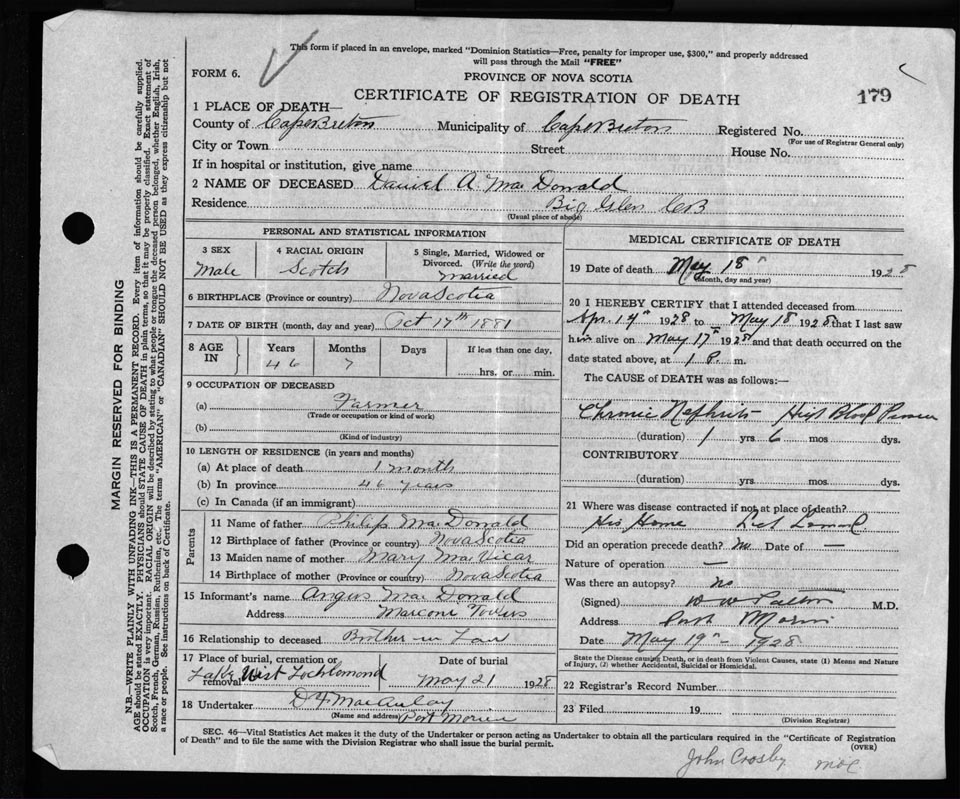 This form if placed in an envelope, marked "Dominion Statistics—Free, penalty for improper use, $300," and properly addressed
will pass through the Mail "FREE"
FORM 6.
PROVINCE OF NOVA SCOTIA
CERTIFICATE OF REGISTRATION OF DEATH
179
1 PLACE OF DEATH—
County of Cape Breton Municipality of Cape Breton Registered No.
(For use of Registrar General only)
City or Town Street House No.
If in hospital or institution, give name
2 NAME OF DECEASED Daniel A. MacDonald
Residence Big Glen CB
(Usual place of abode)
PERSONAL AND STATISTICAL INFORMATION
3 SEX
Male
4 RACIAL ORIGIN
Scotch
5 Single, Married, Widowed or
Divorced. (Write the word)
Married
6 BIRTHPLACE (Province or country) Nova Scotia
7 DATE OF BIRTH (month, day and year) Oct 17th 1881
8 AGE IN
Years Months Days If less than one day,
46 7 hrs. or min.
9 OCCUPATION OF DECEASED
(a) Farmer
(Trade or occupation or kind of work)
(b)
(Kind of industry)
10 LENGTH OF RESIDENCE (in years and months)
(a) At place of death 1 month
(b) In province 46 years
(c) In Canada (if an immigrant)
Parents
11 Name of father Philip MacDonald
12 Birthplace of father (Province or country) Nova Scotia
13 Maiden name of mother Mary MacVicar
14 Birthplace of mother (Province or country) Nova Scotia
15 Informant's name Angus MacDonald
Address Marconi Towers
16 Relationship to deceased Brother in Law
17 Place of burial, cremation or
removal West Loch Lomond
Date of burial
May 21 1928
18 Undertaker D F MacAulay
(Name and address) Port Morien
MEDICAL CERTIFICATE OF DEATH
19 Date of death May 18" 1928
(Month, day and year)
20 I HEREBY CERTIFY that I attended deceased from
Apr. 14th 1928 to May 18 1928 that I last saw
him alive on May 17th 1928 and that death occurred on the
date stated above, at 1 P. m.
The CAUSE OF DEATH was as follows:—
Chronic Nephritis High Blood Pressure
(duration) 1 yrs 6 mos dys.
CONTRIBUTORY
(duration) yrs. mos. dys.
21 Where was disease contracted if not at place of death?
His Home Loch Lomond
Did an operation precede death? No Date of —
Nature of operation —
Was there an autopsy? no
(Signed) M.D.
Address Port Morien
Date May 19" – 1928
State the Disease causing Death, or in death from Violent Causes, state (1) Means and Nature
of Injury, (2) whether Accidental, Suicidal or Homicidal.
22 Registrar's Record Number
23 Filed 19
(Division Registrar)
SEC. 46—Vital Statistics Act makes it the duty of the Undertaker or person acting as Undertaker to obtain all the particulars required in the "Certificate of Registration
of Death" and to file the same with the Division Registrar who shall issue the burial permit.
(OVER)
John Crosby
MARGIN RESERVED FOR BINDING
N.B. WRITE PLAINLY WITH UNFADING INK—THIS IS A PERMANENT RECORD. Every item of information should be carefully supplied.
AGE should be stated EXACTLY. PHYSICIANS should STATE CAUSE OF DEATH in plain terms, so that it may be properly classified. Exact statement of
OCCUPATION is very important. RACIAL ORIGIN will be described by stating to what people or tongue the deceased person belonged, whether English, Irish,
Scotch, French, German, Russian, Ruthenian, etc. The terms "AMERICAN" or "CANADIAN" SHOULD NOT BE USED as they express citizenship but not
a race or people. See instructions on back of Certificate.